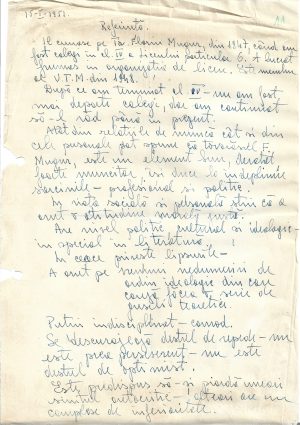 15-I-1951.
11
Referință.
Îl cunosc pe Tov. Florin Mugur, din 1947, când am
fost colegi în cl. IV a liceului particular G. A lucrat
frumos în organizația de liceu. Este membru
al U.T.M. din 1948.
După ce am terminat cl. IV-a nu am fost
mai departe colegi, dar am continuat
să-l văd până în prezent.
Atât din relațiile de muncă cât și din
cele personale pot spune că tovarășul F.
Mugur, este un element bun, devotat
foarte muncitor, își duce la îndeplinire
sarcinile - profesional și politic.
În viața socială și personală știu că a
avut o atitudine morală justă.
Are nivel politic, cultural și ideologic -
în special în literatură.
În ceace privește lipsurile -
A avut pe vremuri nedumeriri de
ordin ideologic din care
cauză făcea o serie de
greșeli teoretice.
Puțin indisciplinat - comod.
Se descurajează destul de repede - nu
este prea perseverent - nu este
destul de optimist.
Este predispus să-și piardă uneori
simțul autocritic - alteori are un
complex de inferioritate.